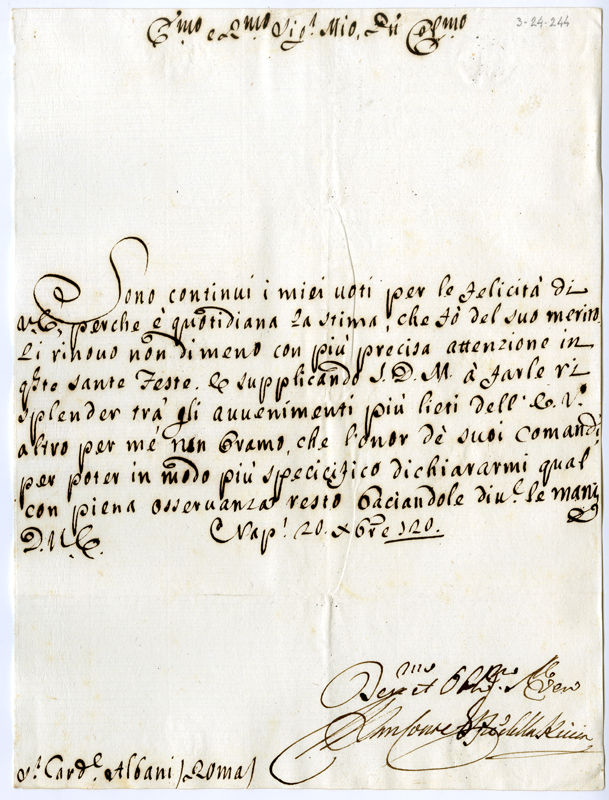 3-24-244
Em̃o e Rmo Sigr Mio, Pñ Colmo
Sono continui i miei voti per le felicità di
V.E, perche è quotidiana la stima, che fò del suo merito.
Li rinovo non di meno con più precisa attenzione in
qste sante Feste. E supplicando S. D. M. à farle ri
splender trà gli avvenimenti più lieti dell' E. V.
altro per mé non bramo, che l'onor dè suoi comandi
per poter in modo più specifico dichiararmi qual
con piena osservanza resto baciandole div.e le mani
D. V. E. Napl 20. Xbre 120.
Sr Cardl Albani / Roma /